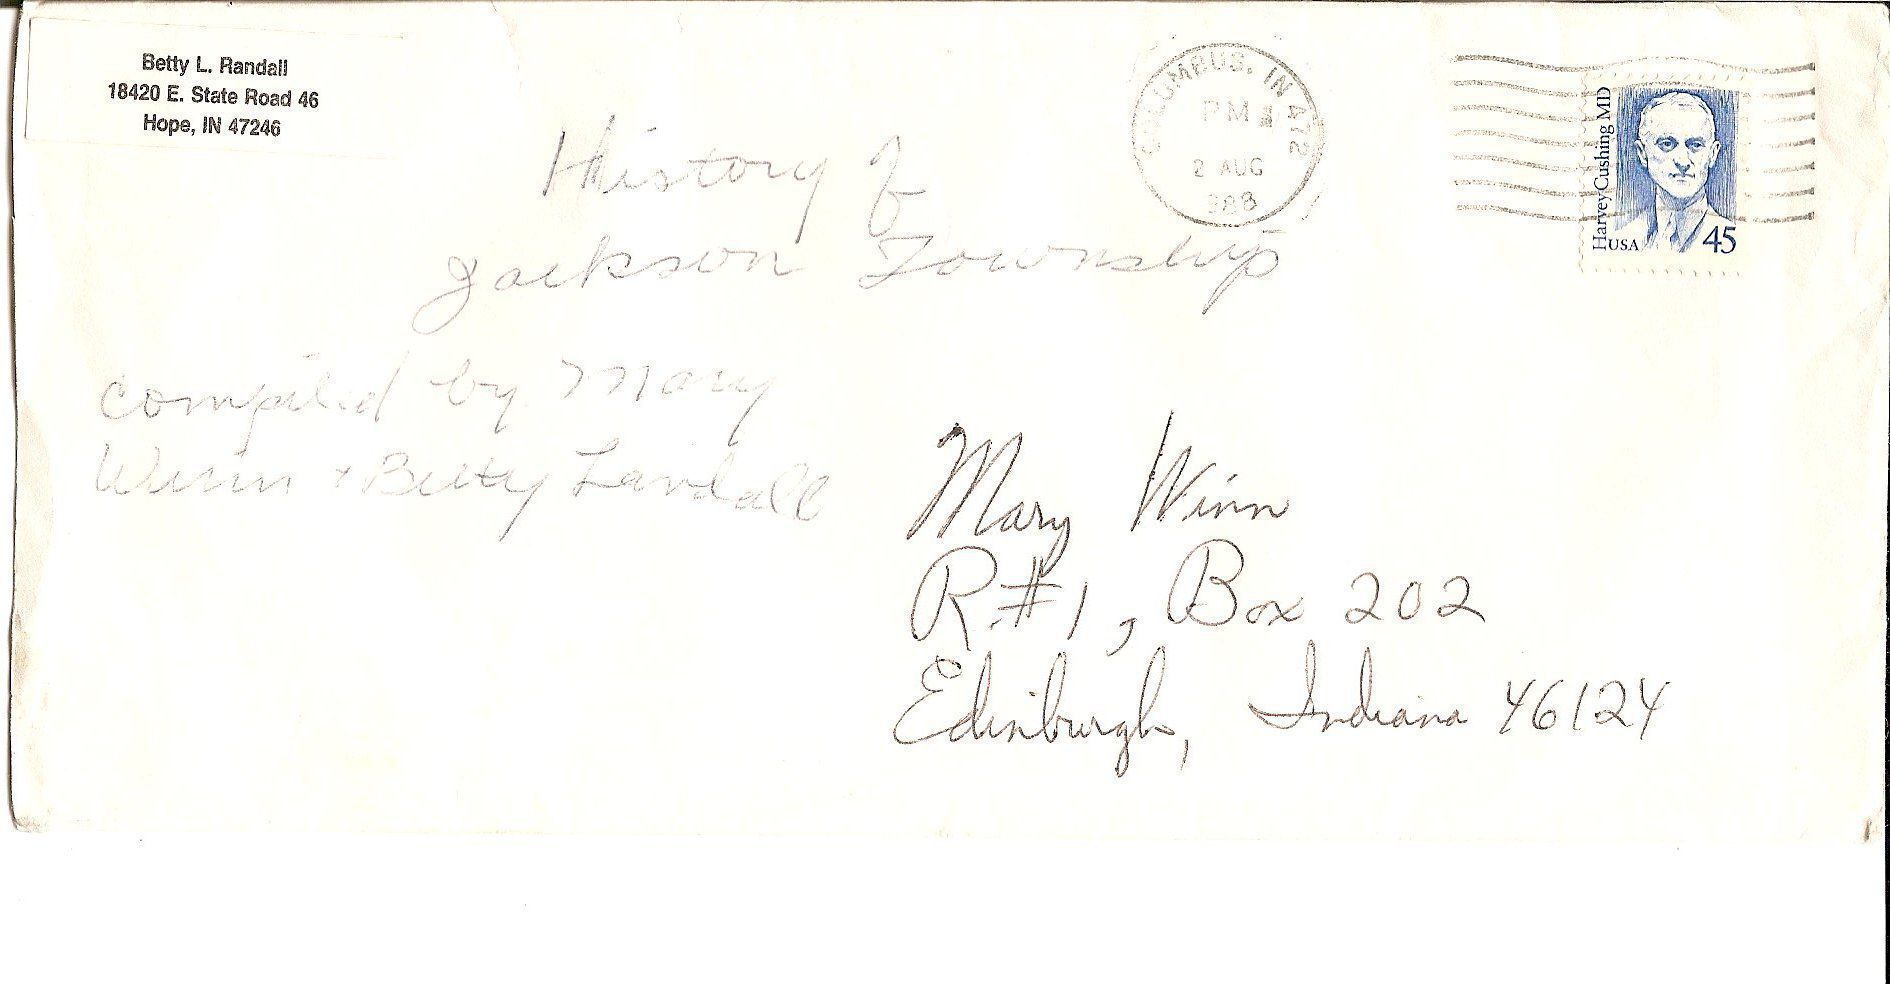 Betty L. Randall
18420 E. State Road 46
Hope, IN 47246
COLUMBUS, IN 472
PM
2 AUG
988
Harvey Cushing MD
USA 45
History of
Jackson Township
compiled by Mary
Winn + Betty Randall
Mary Winn
R.#1, Box 202
Edinburgh, Indiana 46124